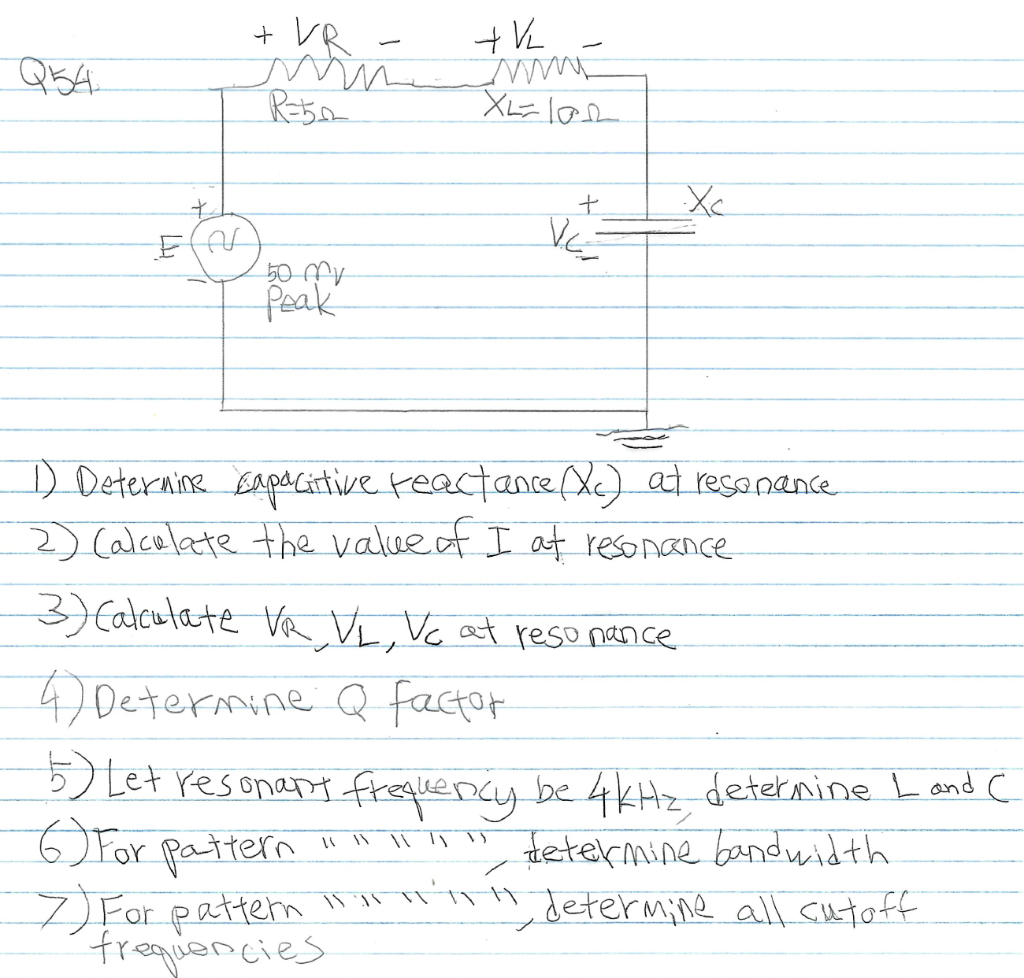 + VR - + VL -
Q54.
R=5Ω XL=10Ω
+ + Xc
E Vc
- -
50 mV
Peak
1) Determine capacitive reactance (Xc) at resonance
2) Calculate the value of I at resonance
3) Calculate VR, VL, Vc at resonance
4) Determine Q factor
5) Let resonant frequency be 4kHz, determine L and C
6) For pattern " " " " ", determine bandwidth
7) For pattern " " " " ", determine all cutoff
frequencies